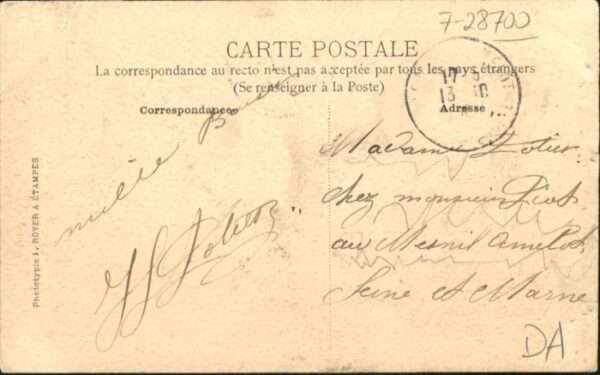 7-28700
CARTE POSTALE
La correspondance au recto n'est pas acceptée par tous les pays étrangers
(Se renseigner à la Poste)
Correspondance
Adresse
17
13
Madame
chez monsieur
au Mesnil Amelot
Seine et Marne
Phototypie L. ROYER A ÉTAMPES
DA